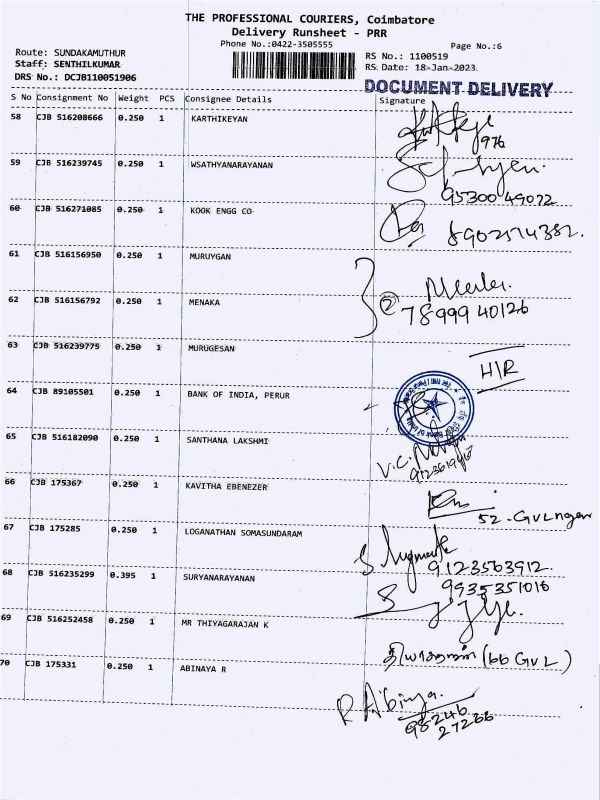 THE PROFESSIONAL COURIERS, Coimbatore
Delivery Runsheet - PRR
Phone No.:0422-3505555
Page No.:6
Route: SUNDAKAMUTHUR
RS No.: 1100519
Staff: SENTHILKUMAR
RS Date: 18-Jan-2023
DRS No.: DCJB110051906
DOCUMENT DELIVERY
S No Consignment No Weight PCS Consignee Details Signature
58 CJB 516208666 0.250 1 KARTHIKEYAN
976
59 CJB 516239745 0.250 1 WSATHYANARAYANAN
95300 49072
60 CJB 516271085 0.250 1 KOOK ENGG CO
8902574382.
61 CJB 516156950 0.250 1 MURUYGAN
62 CJB 516156792 0.250 1 MENAKA
2
78999 40126
63 CJB 516239775 0.250 1 MURUGESAN
H/R
64 CJB 89105501 0.250 1 BANK OF INDIA, PERUR
65 CJB 516182090 0.250 1 SANTHANA LAKSHMI
V.C.
66 CJB 175367 0.250 1 KAVITHA EBENEZER
52-GVL nger
67 CJB 175285 0.250 1 LOGANATHAN SOMASUNDARAM
9123563912.
68 CJB 516235299 0.395 1 SURYANARAYANAN
9935351016
69 CJB 516252458 0.250 1 MR THIYAGARAJAN K
தியாகராஜன் (66 GVL)
70 CJB 175331 0.250 1 ABINAYA R
R Abinya.
98246
27266